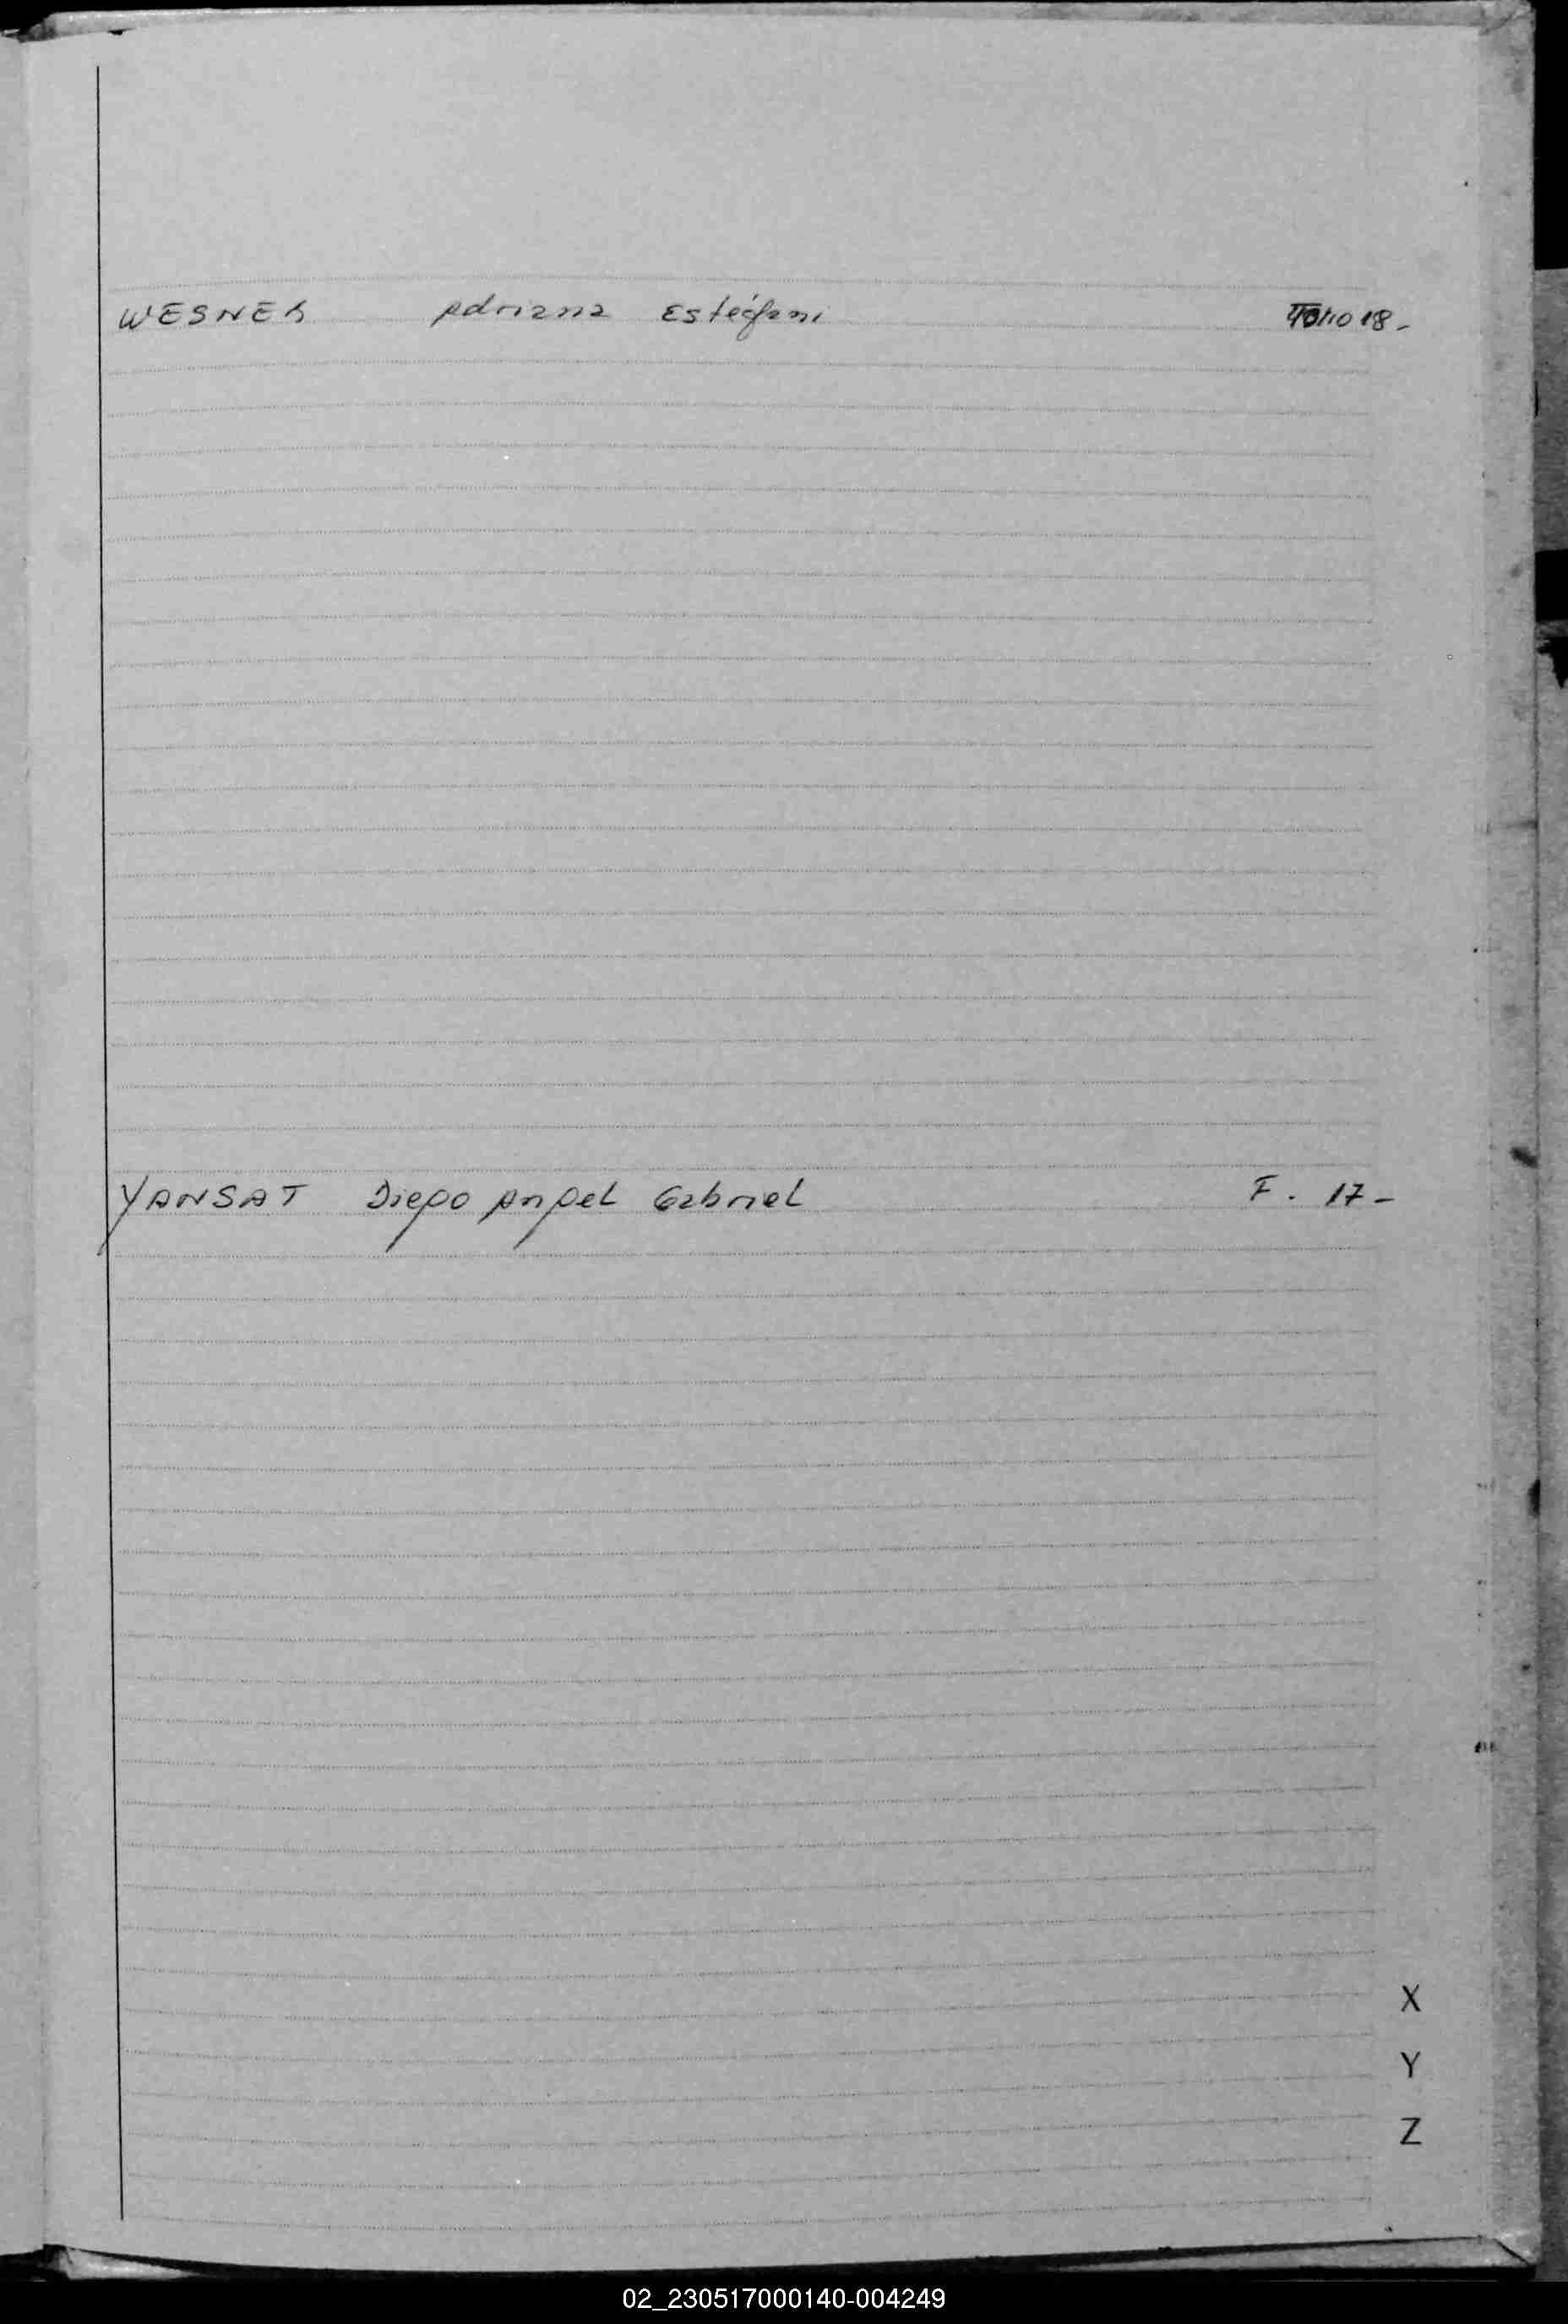 WESNER Adriana Estéfani Folio 18-
YANSAT Diego Angel Gabriel F. 17-
X
Y
Z
02_230517000140-004249